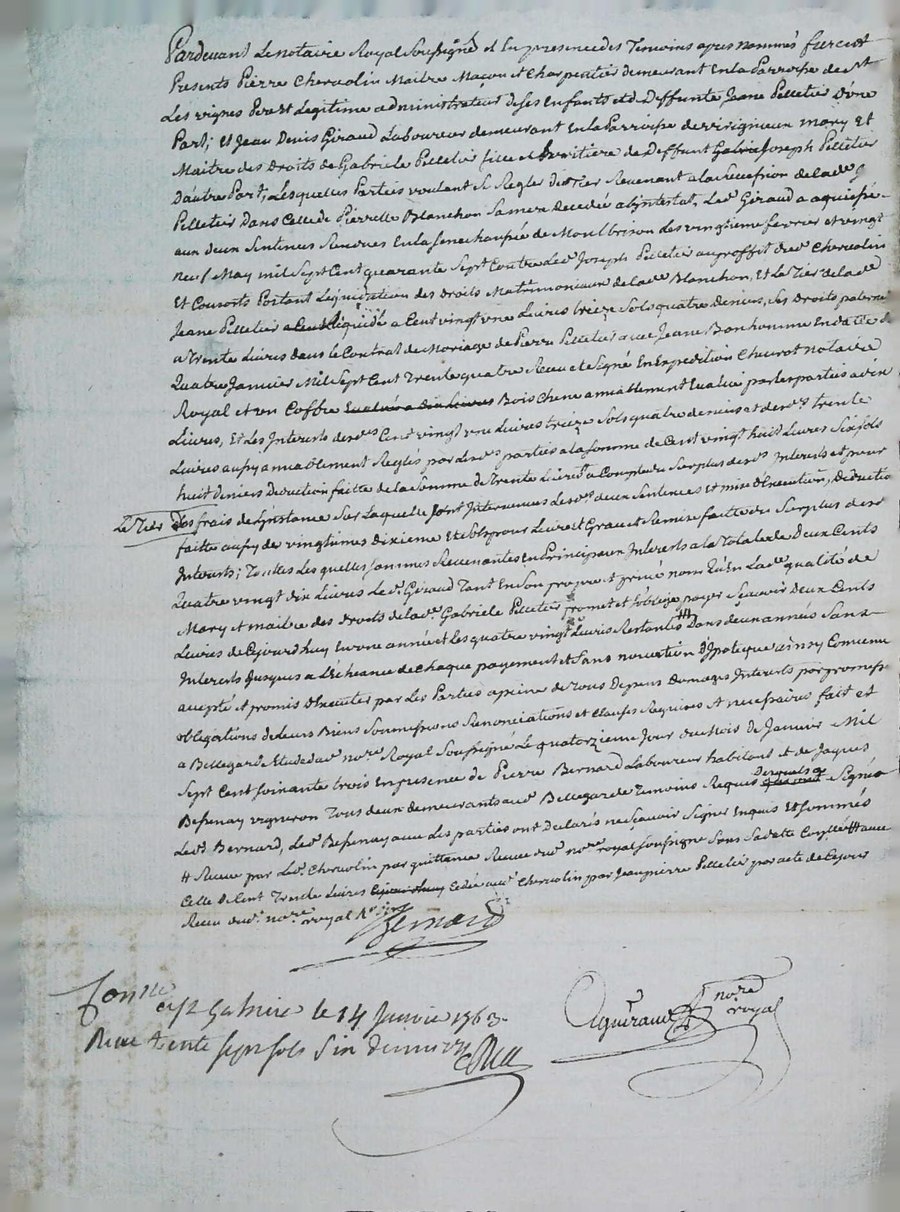 Pardevant Le notaire Royal Soussigné et En presence des Temoins apres nommés furent
Presents Pierre Chervolin Maitre Maçon et Charpentier demeurant En la Parroisse de st
Les vignes Pere et Legitime administrateur de ses Enfants et de Deffunte Jeane Pelletier d'une
Part; Et Jean Denis Giraud Laboureur demeurant En la Parroisse de virigneux mary Et
Maitre des Droits de Gabriele Pelletier fille et heritiere de Deffunt Gabrie Joseph Pelletier
D'autre Part, Lesquelles Parties voulant se Regler du Tier Revenant a la succession de lade J
Pelletier Dans Celle de Pierrette Blanchon Sa mere Decedée abjntestat, Led Giraud a aquiessé
aux deux Sentences Rendues En la senechaussée de Montbrison des vingtieme fevrier et vingt
neuf May mil Sept Cent quarante Sept Contre Led Joseph Pelletier au proffit dud Chervolin
Et Consorts Portant Liquidation des Droits Matrimoniaux de lade Blanchon, Et Le Tier de lade
Jeane Pelletier Liquidé a Cent vingt une Livres treize Sols quatre deniers, Ses Droits paternels
a trente Livres dans le Contrat de Mariage de Pierre Pelletier avec Jeane Bonhomme En datte du
Quatre Janvier Mil Sept Cent Trente quatre Receu et Signé En Expedition Chevrot notaire
Royal et un Coffre Evalué a Dix Livres Bois Chene amiablement Evalué par les parties a dix
Livres, Et Les Interets desd Cent vingt une Livres treize Sols quatre deniers et desd trente
Livres aussy amiablement Reglés par lesd parties a la somme de Cent vingt huit Livres Six sols
huit deniers deduction faitte de la Somme de trente Livres a Compte du Surplus desd Interets et pour
Le Tier des frais de L'jnstance Sur Laquelle sont Intervenues Lesd deux Sentences Et mise d'Execution, Deduction
faitte aussy de vingtiemes dixieme et 
Interets; Toutes Les quelles sommes Revenantes En Principaux Interets a la Totale de Deux Cents
Quatre vingt dix Livres Led Giraud Tant En Son propre et privé nom Qu'En Lade qualité de
Mary et maitre des droits de lade Gabriele Pelletier promet et s'oblige payer Sçavoir Deux Cents
Livres de Cejourdhuy En une année et Les quatre vingt Livres Restantes Dans deux années Sans
Interets Jusques a L'écheance de Chaque payement et Sans novation D'jpoteque ainsy Convenu
accepté et promis d'Executer par Les Parties a peine de tous Depens Domages Interets par promesse
obligations de Leurs Biens Soumissions Renonciations et Clauses Requises et necessaires fait et
a Bellegarde Etude dud nore Royal Soussigné Le quatorzieme Jour du mois de Janvier Mil
Sept Cent soixante trois En presence de Pierre Bernard Laboureur habitant et de Jaques
Bessenay vigneron Tous deux demeurants aud Bellegarde Temoins Requis Desquels a Signé
Led Bernard, Led Bessenay avec Les parties ont Declarés ne sçavoir Signer Enquis Et sommés
H Receue par Led Chervolin par quittance Receue dud nore royal soussigné Sous Sa datte 
Celle de Cent Trente Livres Cejourdhuy Cedée aud Chervolin par Jean pierre Pelletier par acte de Cejour
Receu dud nore royal
Bernard
Conlle
a St Galmier le 14 Janvier 1763
Receu trente sept sols Six deniers
Agniraud nore
royal